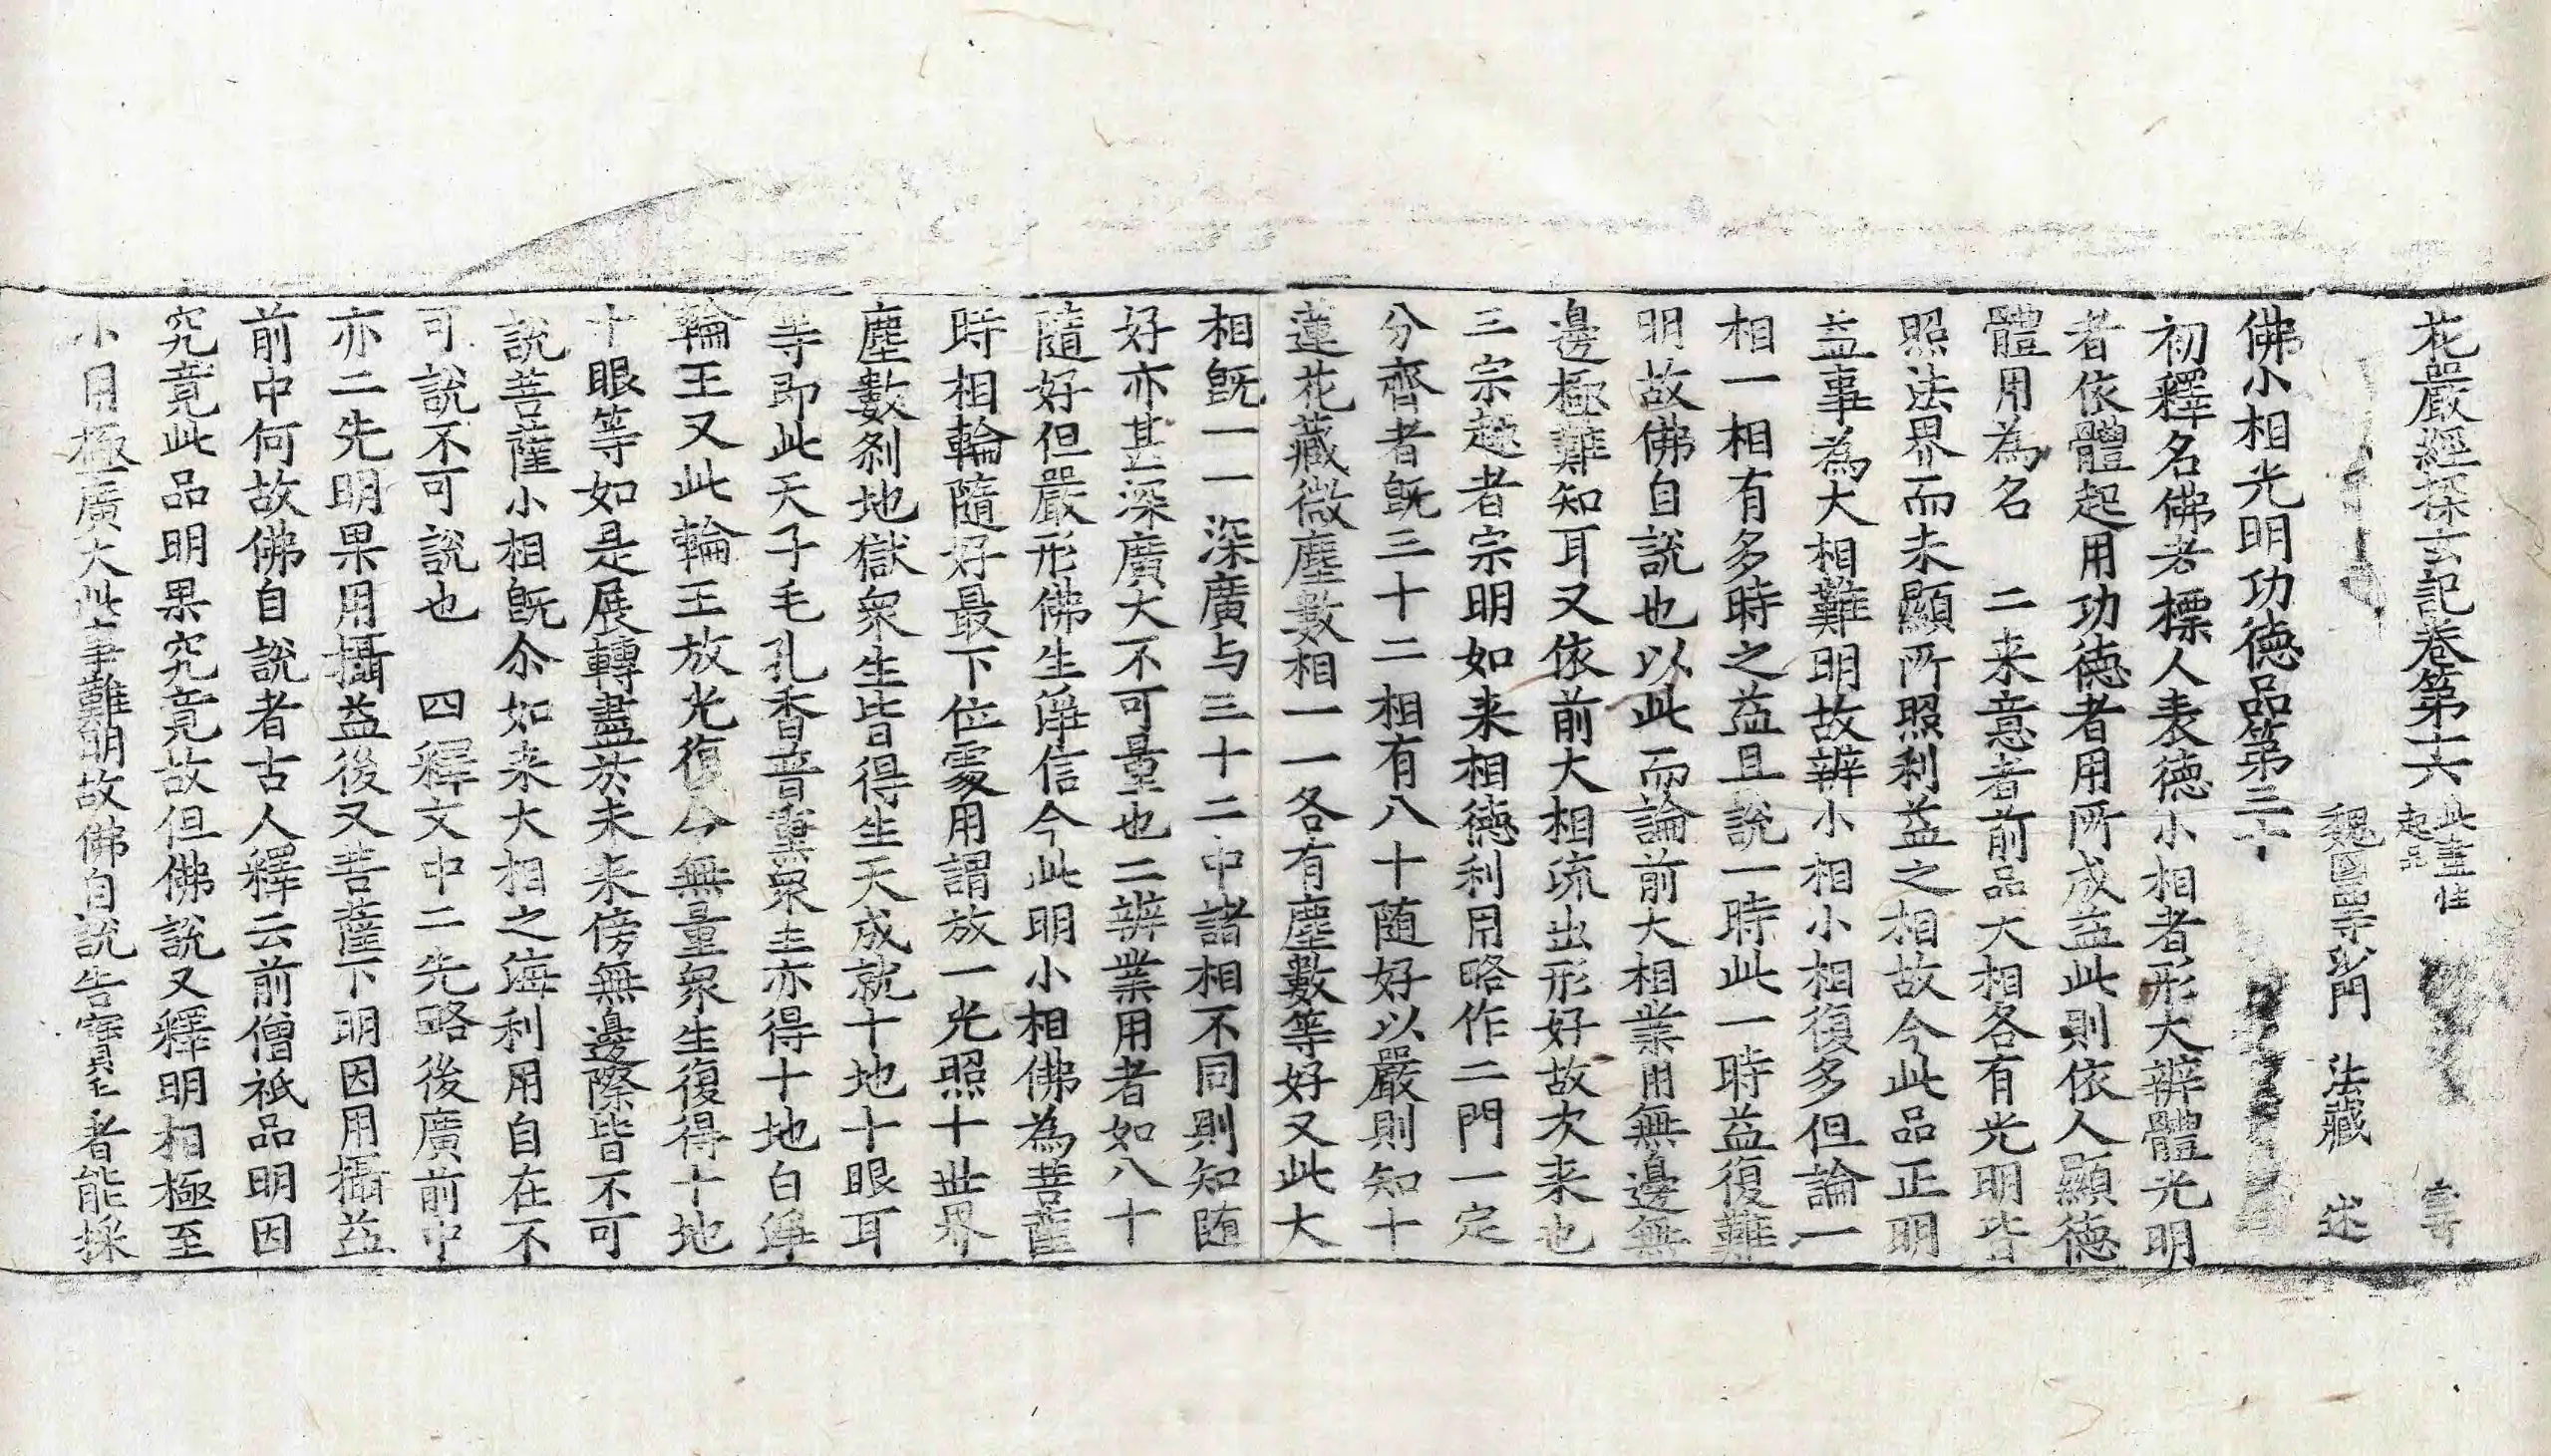 花嚴經探玄記卷第十六 此盡性起品 寄
魏國西寺沙門 法藏 述
佛小相光明功德品第三十
初釋名佛者標人表德小相者形大辨體光明
者依體起用功德者用所成益此則依人顯德
體用為名 二来意者前品大相各有光明皆
照法界而未顯所照利益之相故今此品正明
益事為大相難明故辨小相小相復多但論一
相一相有多時之益且說一時此一時益復難
明故佛自說也以此而論前大相業用無邊無
邊極難知耳又依前大相流出形好故次来也
三宗趣者宗明如来相德利用略作二門一定
分齊者既三十二相有八十随好以嚴則知十
蓮花藏微塵數相一一各有塵數等好又此大
相既一一深廣与三十二中諸相不同則知随
好亦甚深廣大不可量也二辨業用者如八十
隨好但嚴形佛生淨信今此明小相佛為菩薩
時相輪隨好最下位處用謂放一光照十世界
塵數剎地獄衆生皆得生天成就十地十眼耳
等即此天子毛孔香普熏衆生亦得十地白淨
輪王又此輪王放光復令無量衆生復得十地
十眼等如是展轉盡於未来傍無邊際皆不可
說菩薩小相既尒如来大相之海利用自在不
可說不可說也 四釋文中二先略後廣前中
亦二先明果用攝益後又菩薩下明因用攝益
前中何故佛自說者古人釋云前僧祇品明因
究竟此品明果究竟故但佛說又釋明相極至
小用極廣大此事難明故佛自說告寶手者能採